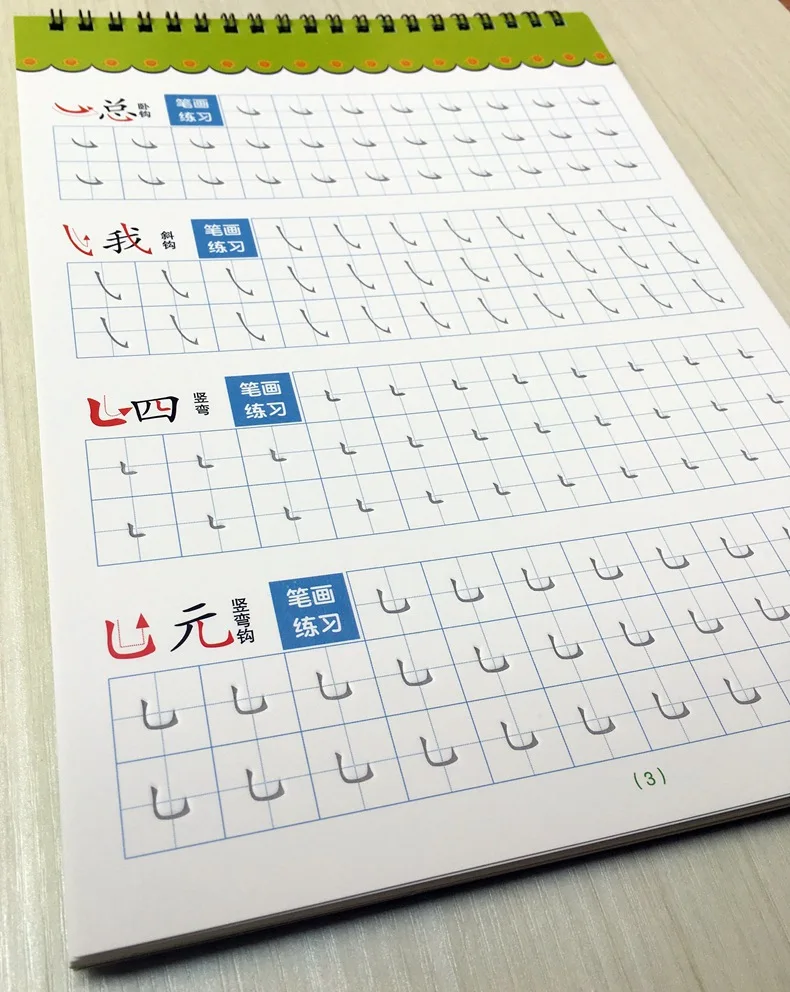 总 卧钩 笔画练习
我 斜钩 笔画练习
四 竖弯 笔画练习
元 竖弯钩 笔画练习
(3)